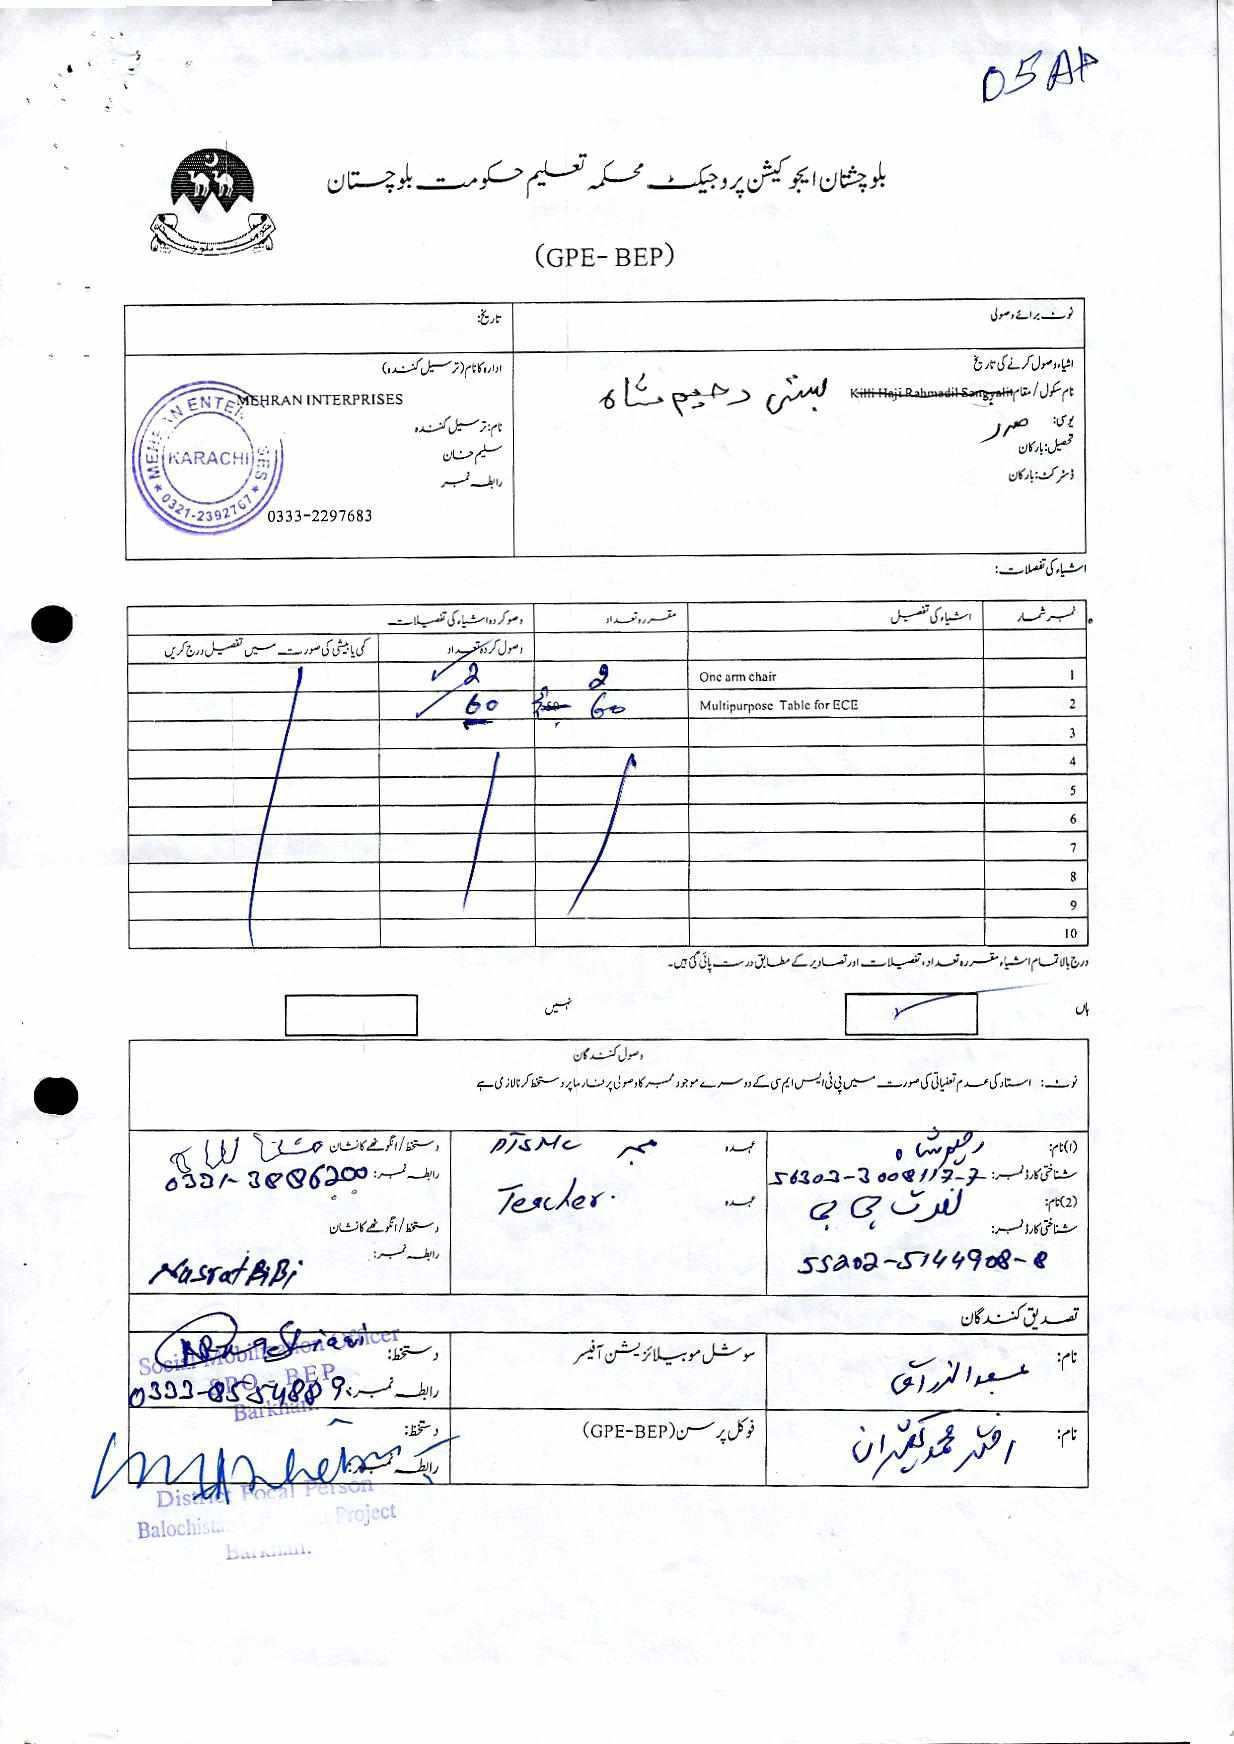 05AP
بلوچستان ایجوکیشن پروجیکٹ محکمہ تعلیم حکومت بلوچستان
(GPE- BEP)
نوٹ برائے وصولی
تاریخ:
اشیاء وصول کرنے کی تاریخ
نام سکول / مقام Killi Haji Rahmadil Sangyali بستی رحیم شاہ
یوسی: صدر
تحصیل: بارکان
ڈسٹرکٹ: بارکان
ادارہ کا نام (ترسیل کنندہ)
MEHRAN INTERPRISES
نام: ترسیل کنندہ
سلیم خان
رابطہ نمبر
0333-2297683
MEHRAN ENTERPRISES
KARACHI
0321-2392767
اشیاء کی تفصلات:
نمبر شمار اشیاء کی تفصیل مقررہ تعداد وصو کردہ اشیاء کی تفصیلات
وصول کردہ تعداد کمی یا بیشی کی صورت میں تفصیل درج کریں
1 One arm chair 2 2
2 Multipurpose Table for ECE 60 60
3
4
5
6
7
8
9
10
درج بالا تمام اشیاء مقررہ تعداد، تفصیلات اور تصاویر کے مطابق درست پائی گئی ہیں۔
ہاں نہیں
وصول کنندگان
نوٹ: استاد کی عدم تعیناتی کی صورت میں پی ٹی ایس ایم سی کے دوسرے موجود ممبر کا وصولی پر نذر ما پر دستخط کرنا لازمی ہے
(1) نام: رحیم شاہ عہدہ ممبر PTSMC دستخط / انگوٹھے کا نشان
شناختی کارڈ نمبر: 56303-3008117-7 رابطہ نمبر: 0331-3886200
(2) نام: نصرت بی بی عہدہ Teacher. دستخط / انگوٹھے کا نشان
شناختی کارڈ نمبر: 55202-5144908-8 رابطہ نمبر:
Nasrat BiBi
تصدیق کنندگان
نام: عبدالرزاق سوشل موبیلائزیشن آفیسر دستخط:
رابطہ نمبر: 0333-8554889
Social Mobilization Officer
SPO - BEP
Barkhan.
نام: اختر محمد کھیتران فوکل پرسن (GPE-BEP) دستخط:
رابطہ نمبر:
District Focal Person
Project
Barkhan.